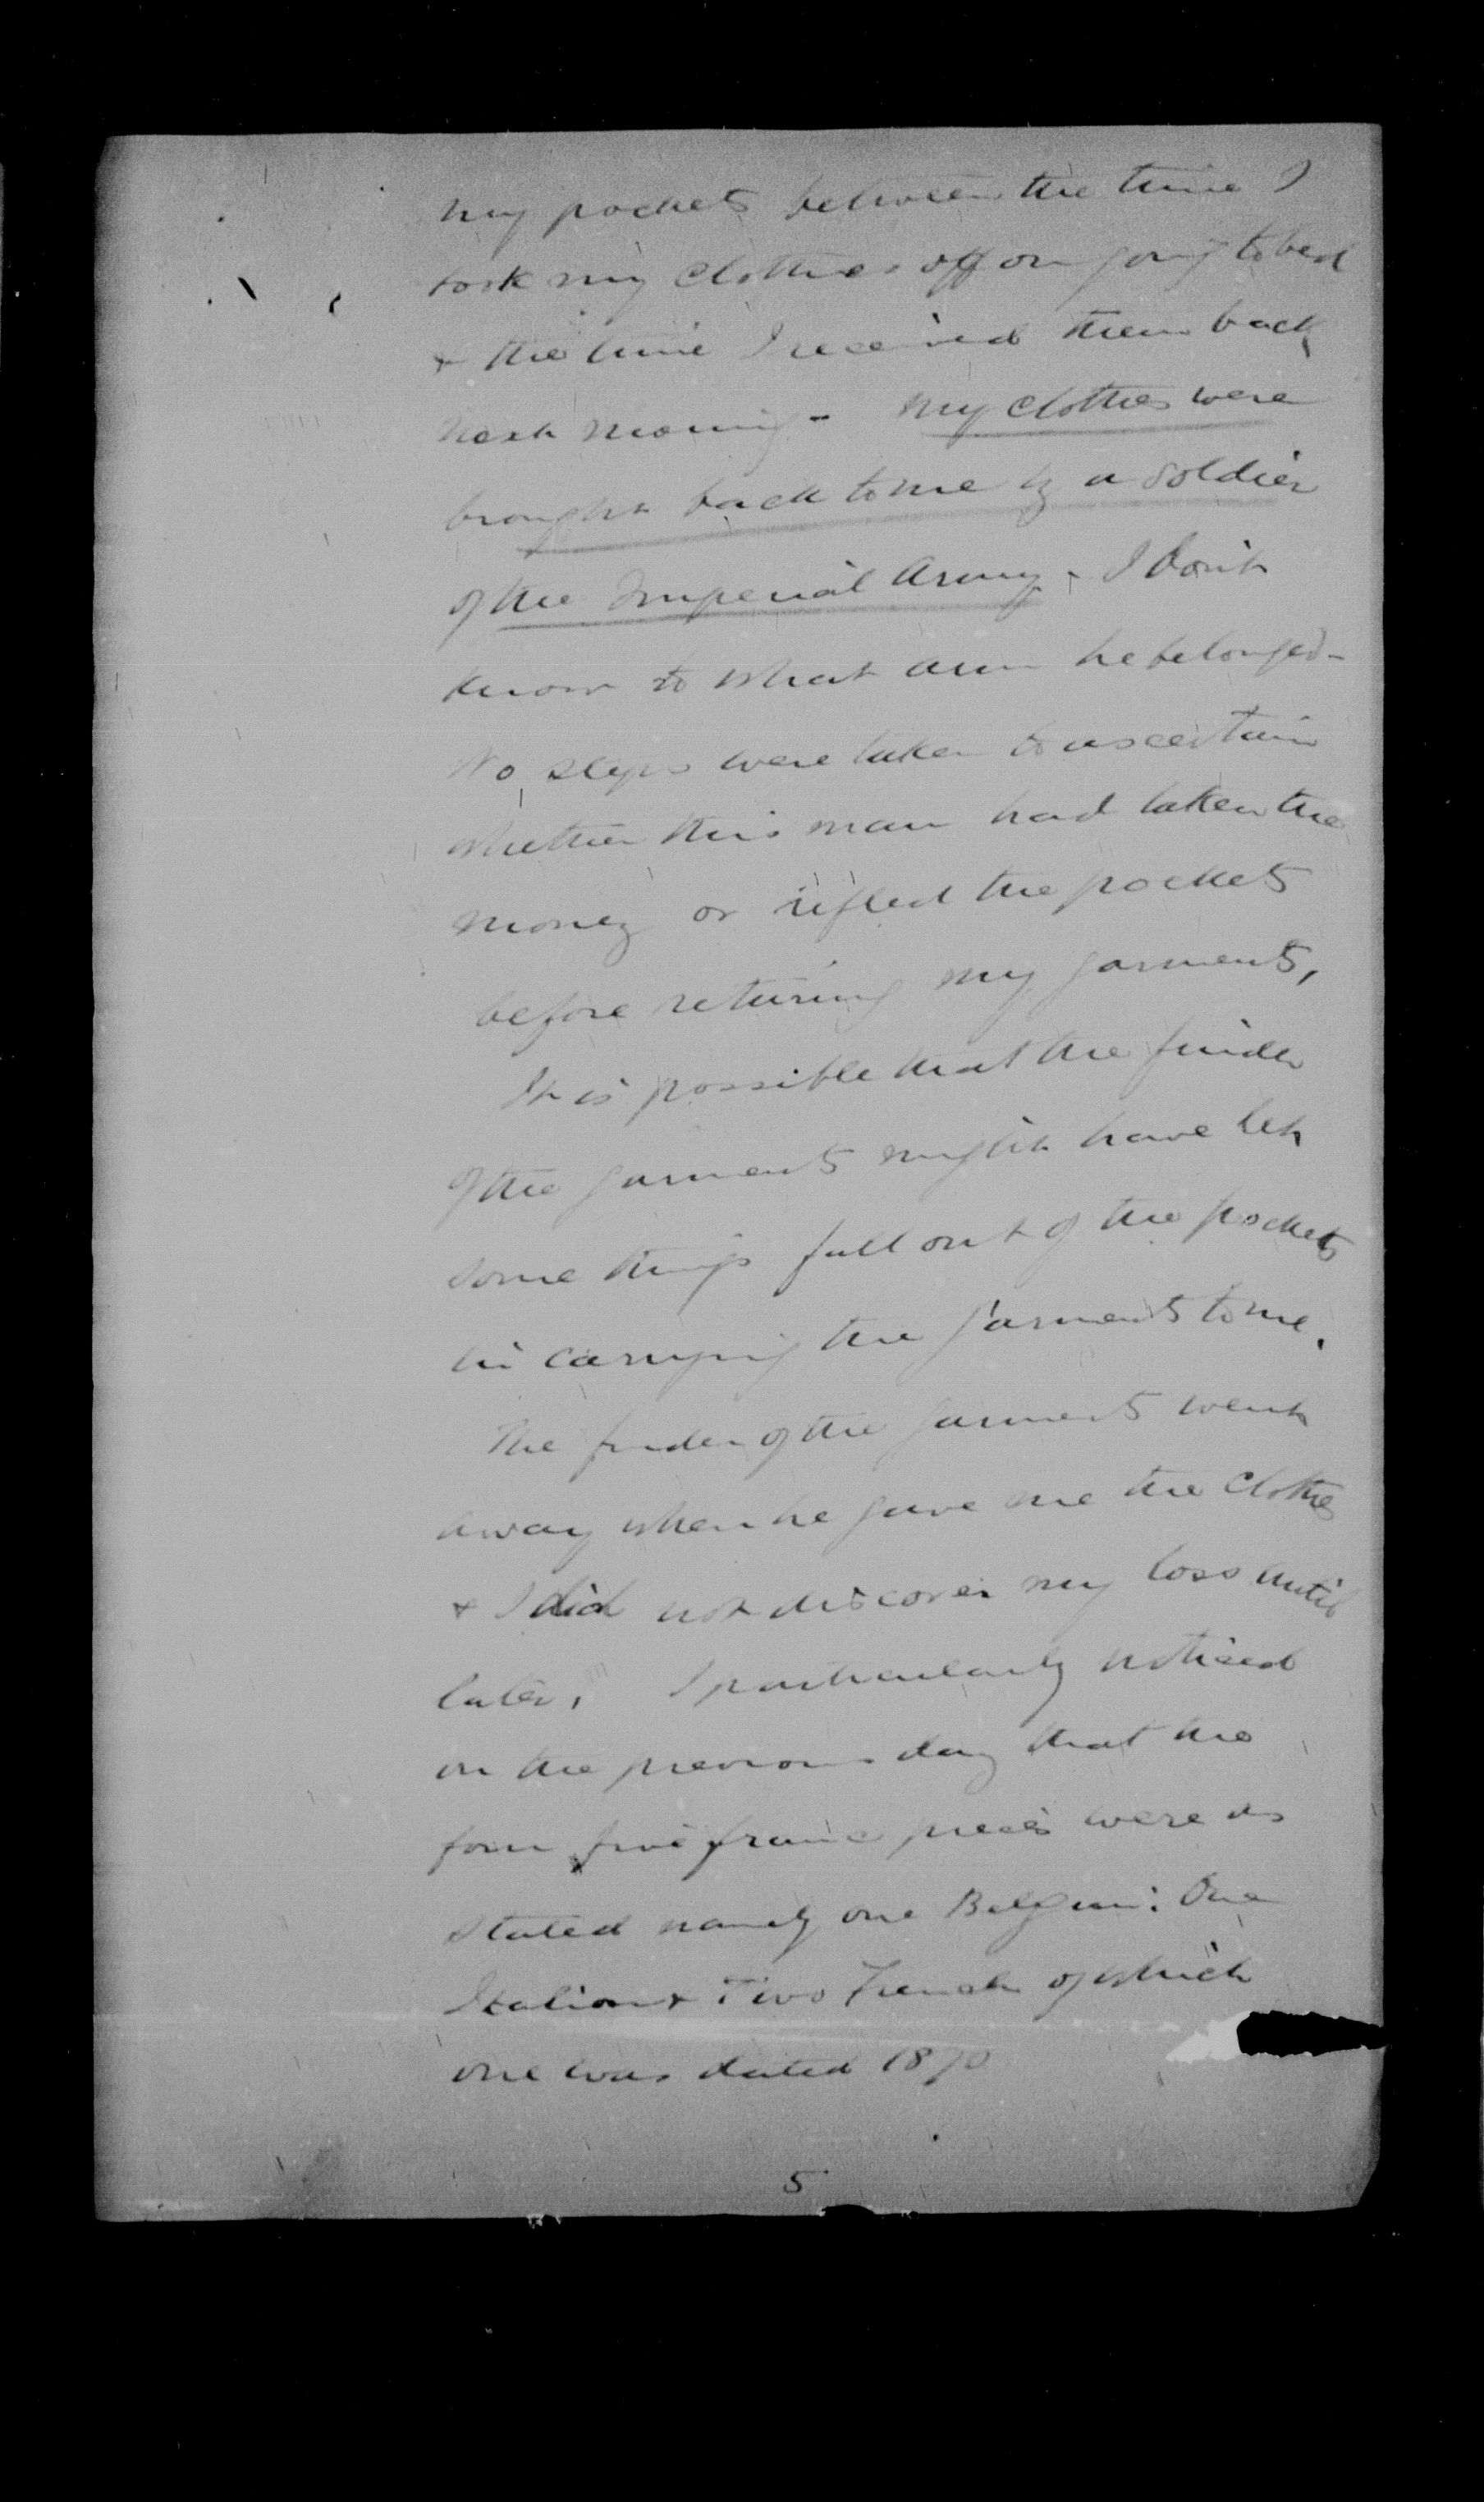 my pockets between the time I
took my clothes off on going to bed
& the time I received them back
next morning - my clothes were
brought back to me by a soldier
of the Imperial Army. I don't
know to what arm he belonged -
No steps were taken to ascertain
whether this man had taken the
money or rifled the pockets
before returning my garments,
It is possible that the finder
of the garments might have let
some things fall out of the pockets
in carrying the garments to me.
The finder of the garments went
away when he gave me the clothes
& I did not discover my loss until
later, I particularly noticed
on the previous day that the
four five franc pieces were as
stated namely one Belgian: One
Italian & Two French of which
one was dated 1870
5